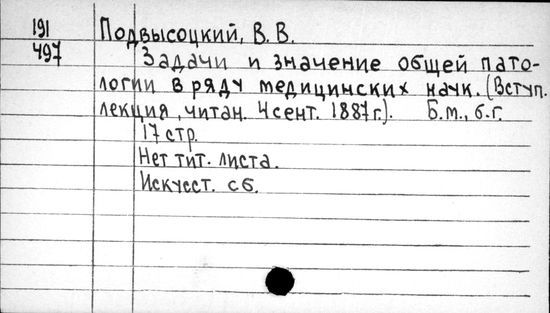 191 Подвысоцкий, В. В.
497 Задачи и значение общей пато-
логии в ряду медицинских наук. (Вступ.
лекция, читан. 4 сент. 1887 г.). Б.м., б.г.
17 стр.
Нет тит. листа.
Искусст. сб.